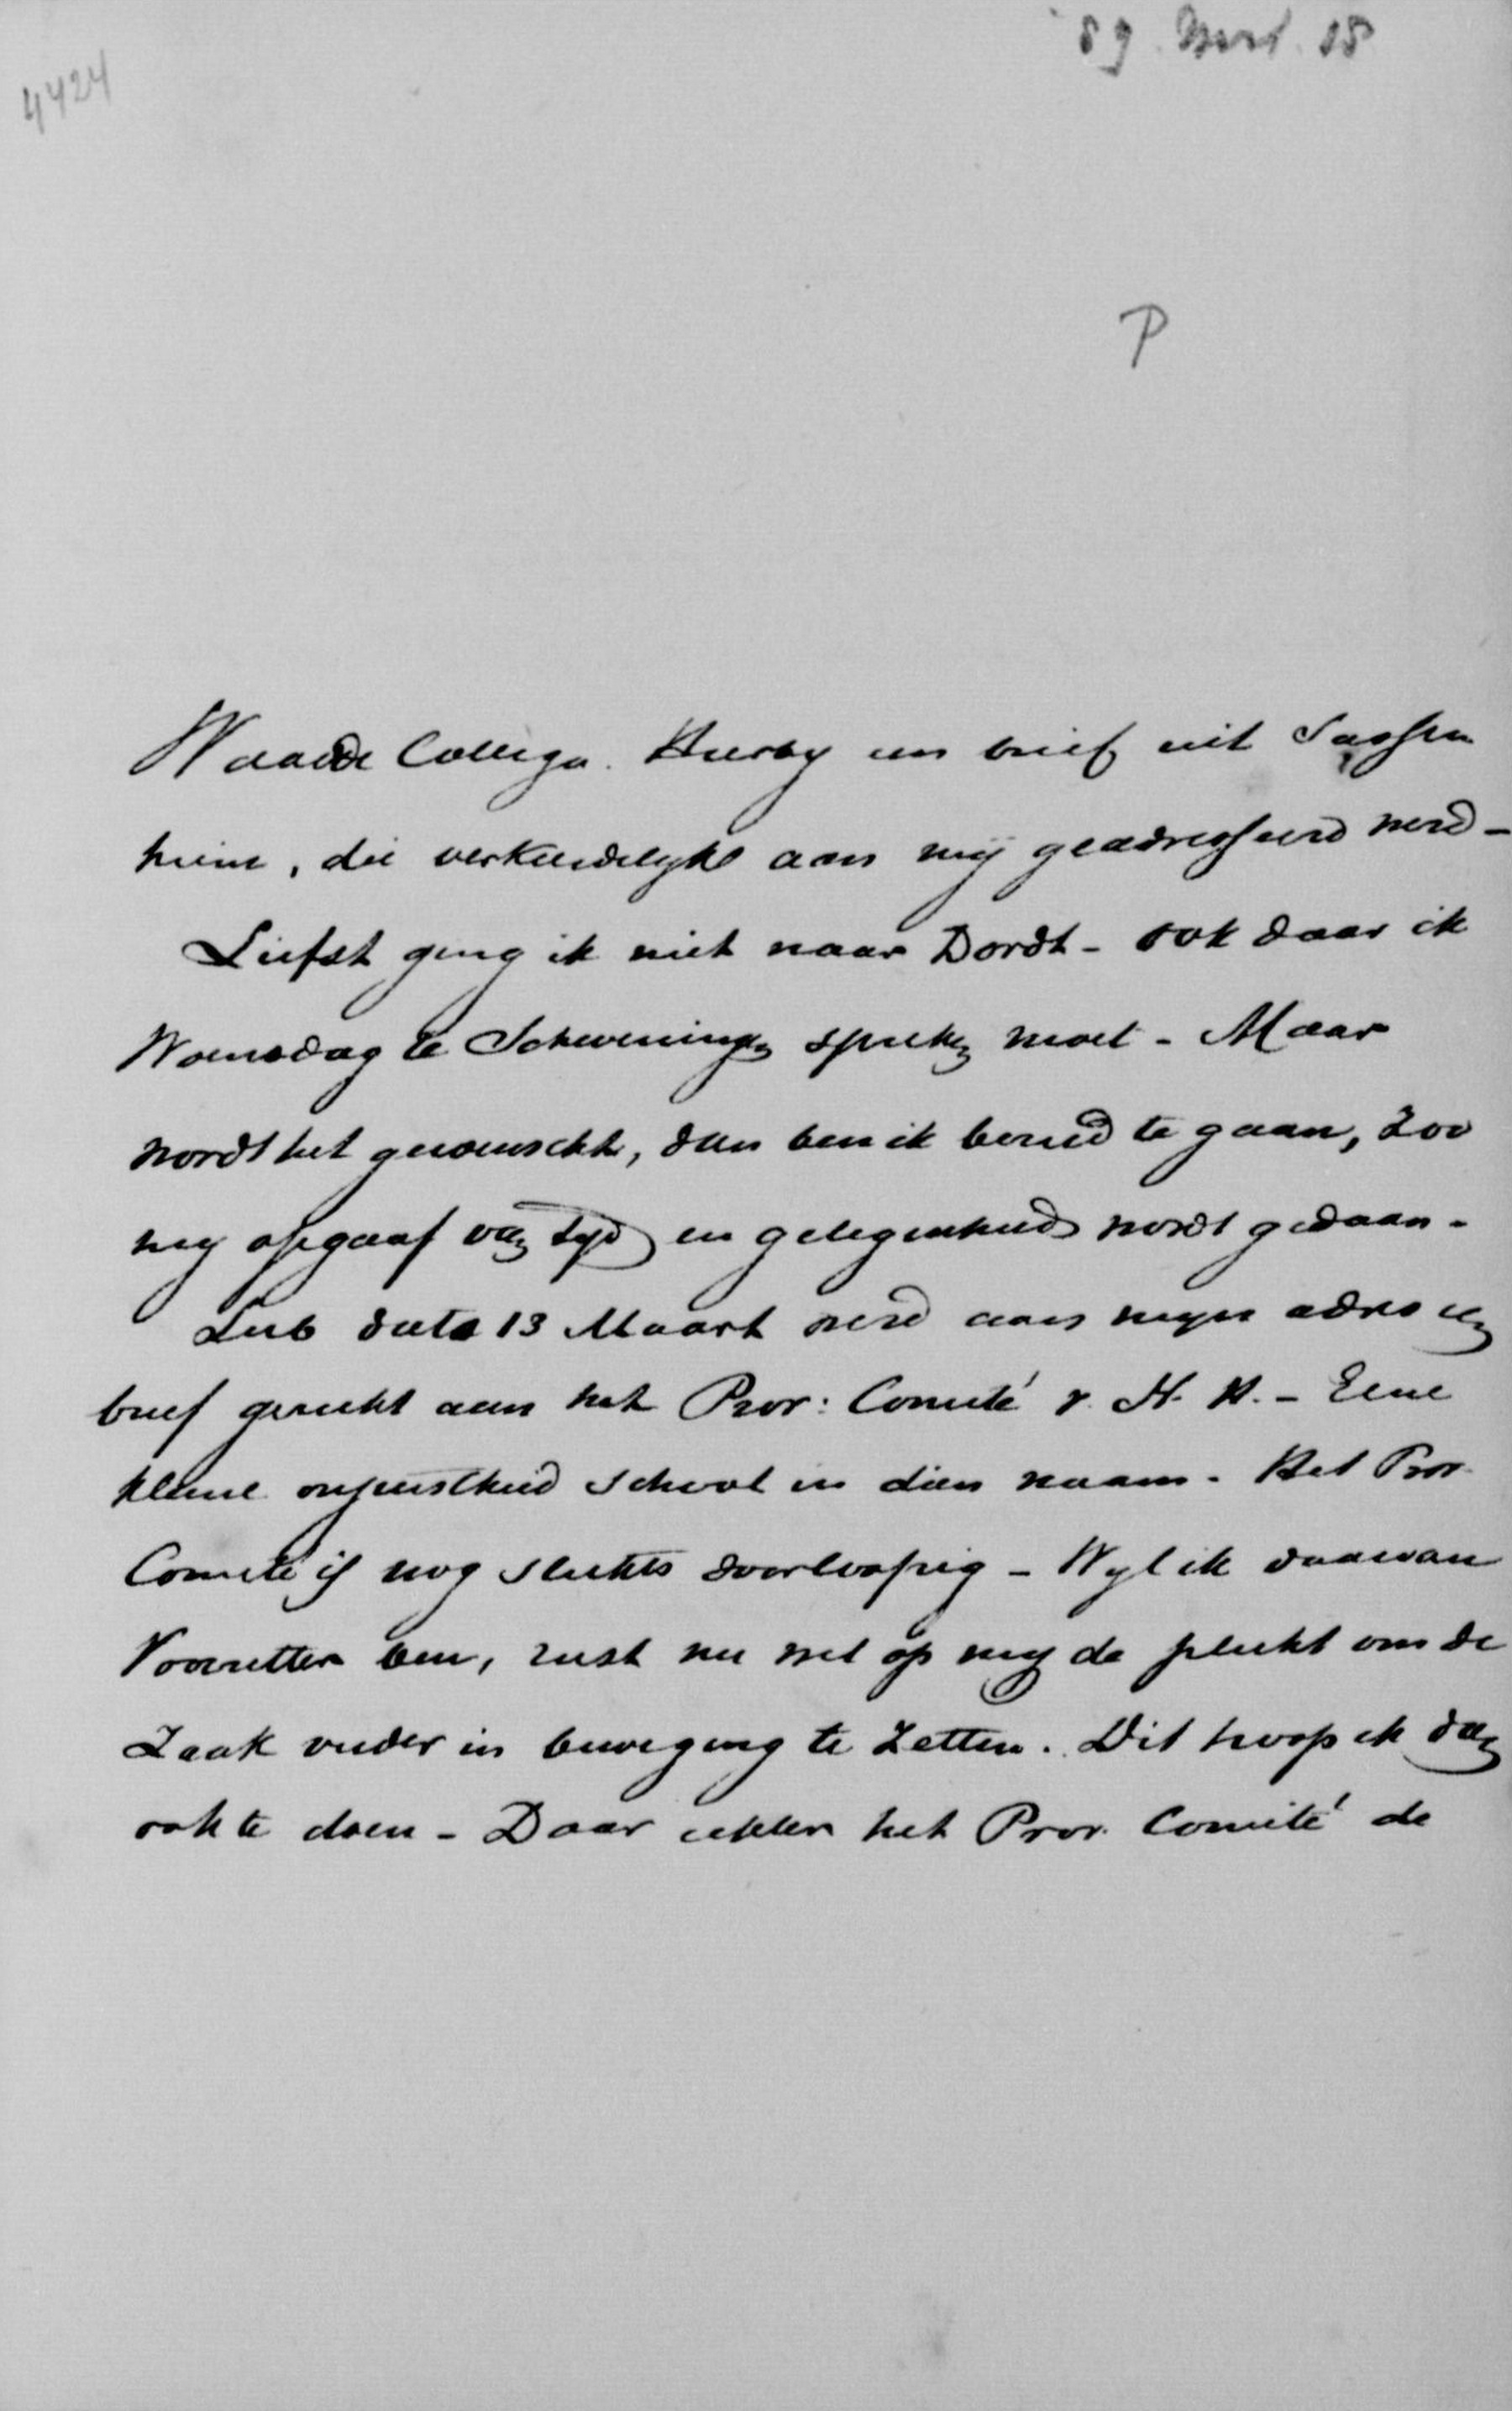 4424
89. Mrt. 15
P
Waarde Collega. Hierby een brief uit Sassen
heim, die verkeerdelyk aan mij geadresseerd werd -
Liefst ging ik niet naar Dordt - ook daar ik
Woensdag te Scheveningen spreken moet - Maar
wordt het gewenscht, dan ben ik bereid te gaan, zoo
my opgaaf van tyd en gelegenheid wordt gedaan -
Sub dato 13 Maart werd aan myn adres een
brief gericht aan het Prov: Comité v. N. H. - Eene
kleine onjuistheid school in dien naam - Het Prov.
Comité is nog slechts voorloopig - Wyl ik daarvan
Voorzitter ben, rust nu wel op my de plicht om de
Zaak verder in beweging te zetten. Dit hoop ik dan
ook te doen - Daar echter het Prov. Comité de